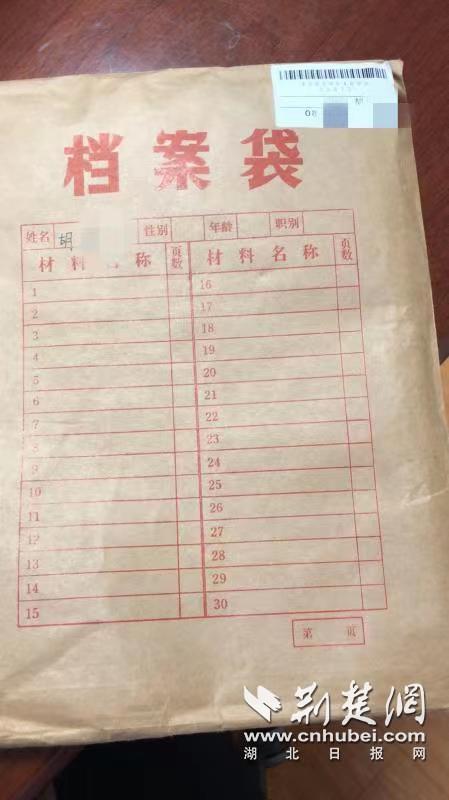 档案袋
姓名 胡 性别 年龄 职别
材料名称 页数 材料名称 页数
1 16
2 17
3 18
4 19
5 20
6 21
7 22
8 23
9 24
10 25
11 26
12 27
13 28
14 29
15 30
第 页
荆楚网
www.cnhubei.com
湖北日报网